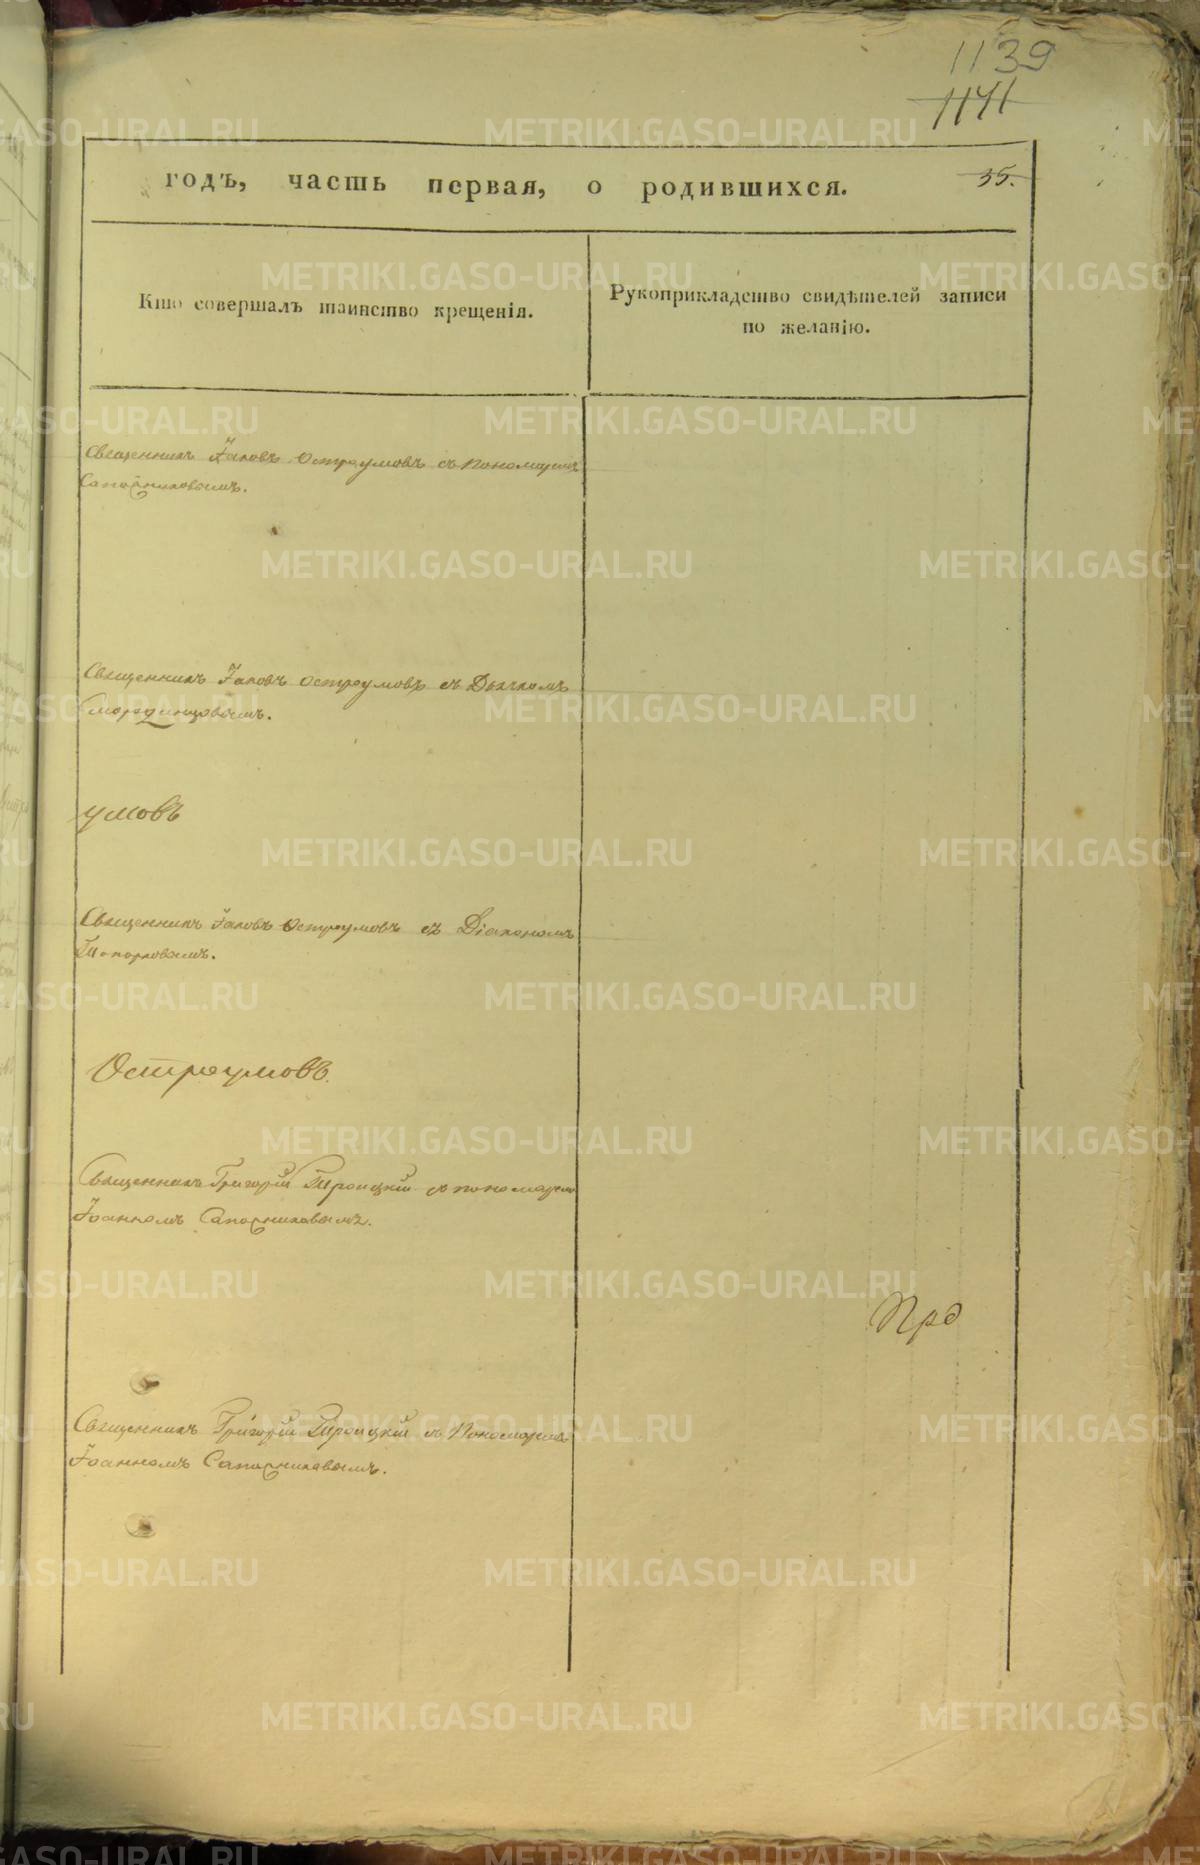 1139
1141
годъ, часть первая, о родившихся.
35.
Кто совершалъ таинство крещенія.
Рукоприкладство свидѣтелей записи
по желанію.
Священникъ Іаковъ Остроумовъ съ пономаремъ
Сапожниковымъ.
Священникъ Іаковъ Остроумовъ съ Дьячкомъ
Смородинцовымъ.
умовъ
Священникъ Іаковъ Остроумовъ съ Діакономъ
Топорковымъ.
Остроумовъ.
Священникъ Григорій Троицкій съ пономаремъ
Іоанномъ Сапожниковымъ.
Прд
Священникъ Григорій Троицкій съ Пономаремъ
Іоанномъ Сапожниковымъ.
METRIKI.GASO-URAL.RU